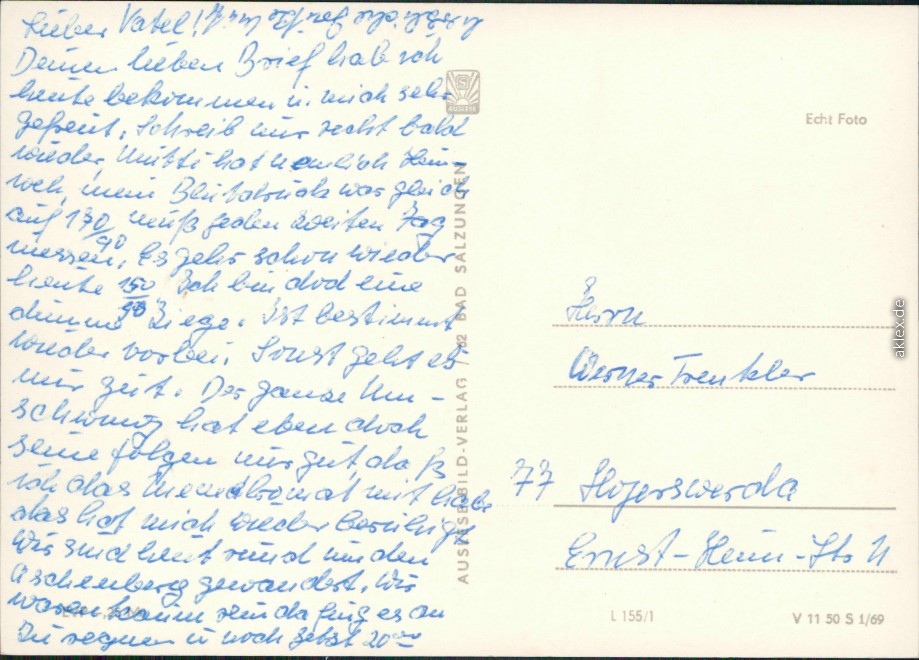 Lieber Vatel!
Deinen lieben Brief hab ich
heute bekommen u. mich sehr
gefreut, Schreib mir recht bald
wieder, Mutti hat nämlich Heim-
weh, mein Blutdruck war gleich
auf 170/90 muß jeden zweiten Tag
messen. Es geht schon wieder
heute 150/90 Ich bin doch eine
dumme Ziege. Ist bestimmt
wieder vorbei. Sonst geht es
mir gut. Der ganze Um-
schwung hat eben doch
seine Folgen nur gut, daß
ich das mit habe
das hat mich wieder beruhigt
Wir sind heut rund um den
Aschenberg gewandert, Wir
waren kaum rein da fing es an
Zu regnen u noch jetzt 20⁰⁰
AUSLESE
AUSLESE-BILD-VERLAG / 82 BAD SALZUNGEN
Echt Foto
Herrn
Werner Trenkler
77 Hoyerswerda
Ernst-Heim-Str 11
L 155/1
V 11 50 S 1/69
aklex.de